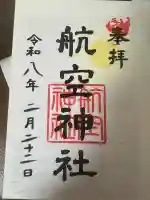 奉拝
航空神社
令和八年二月二十二日